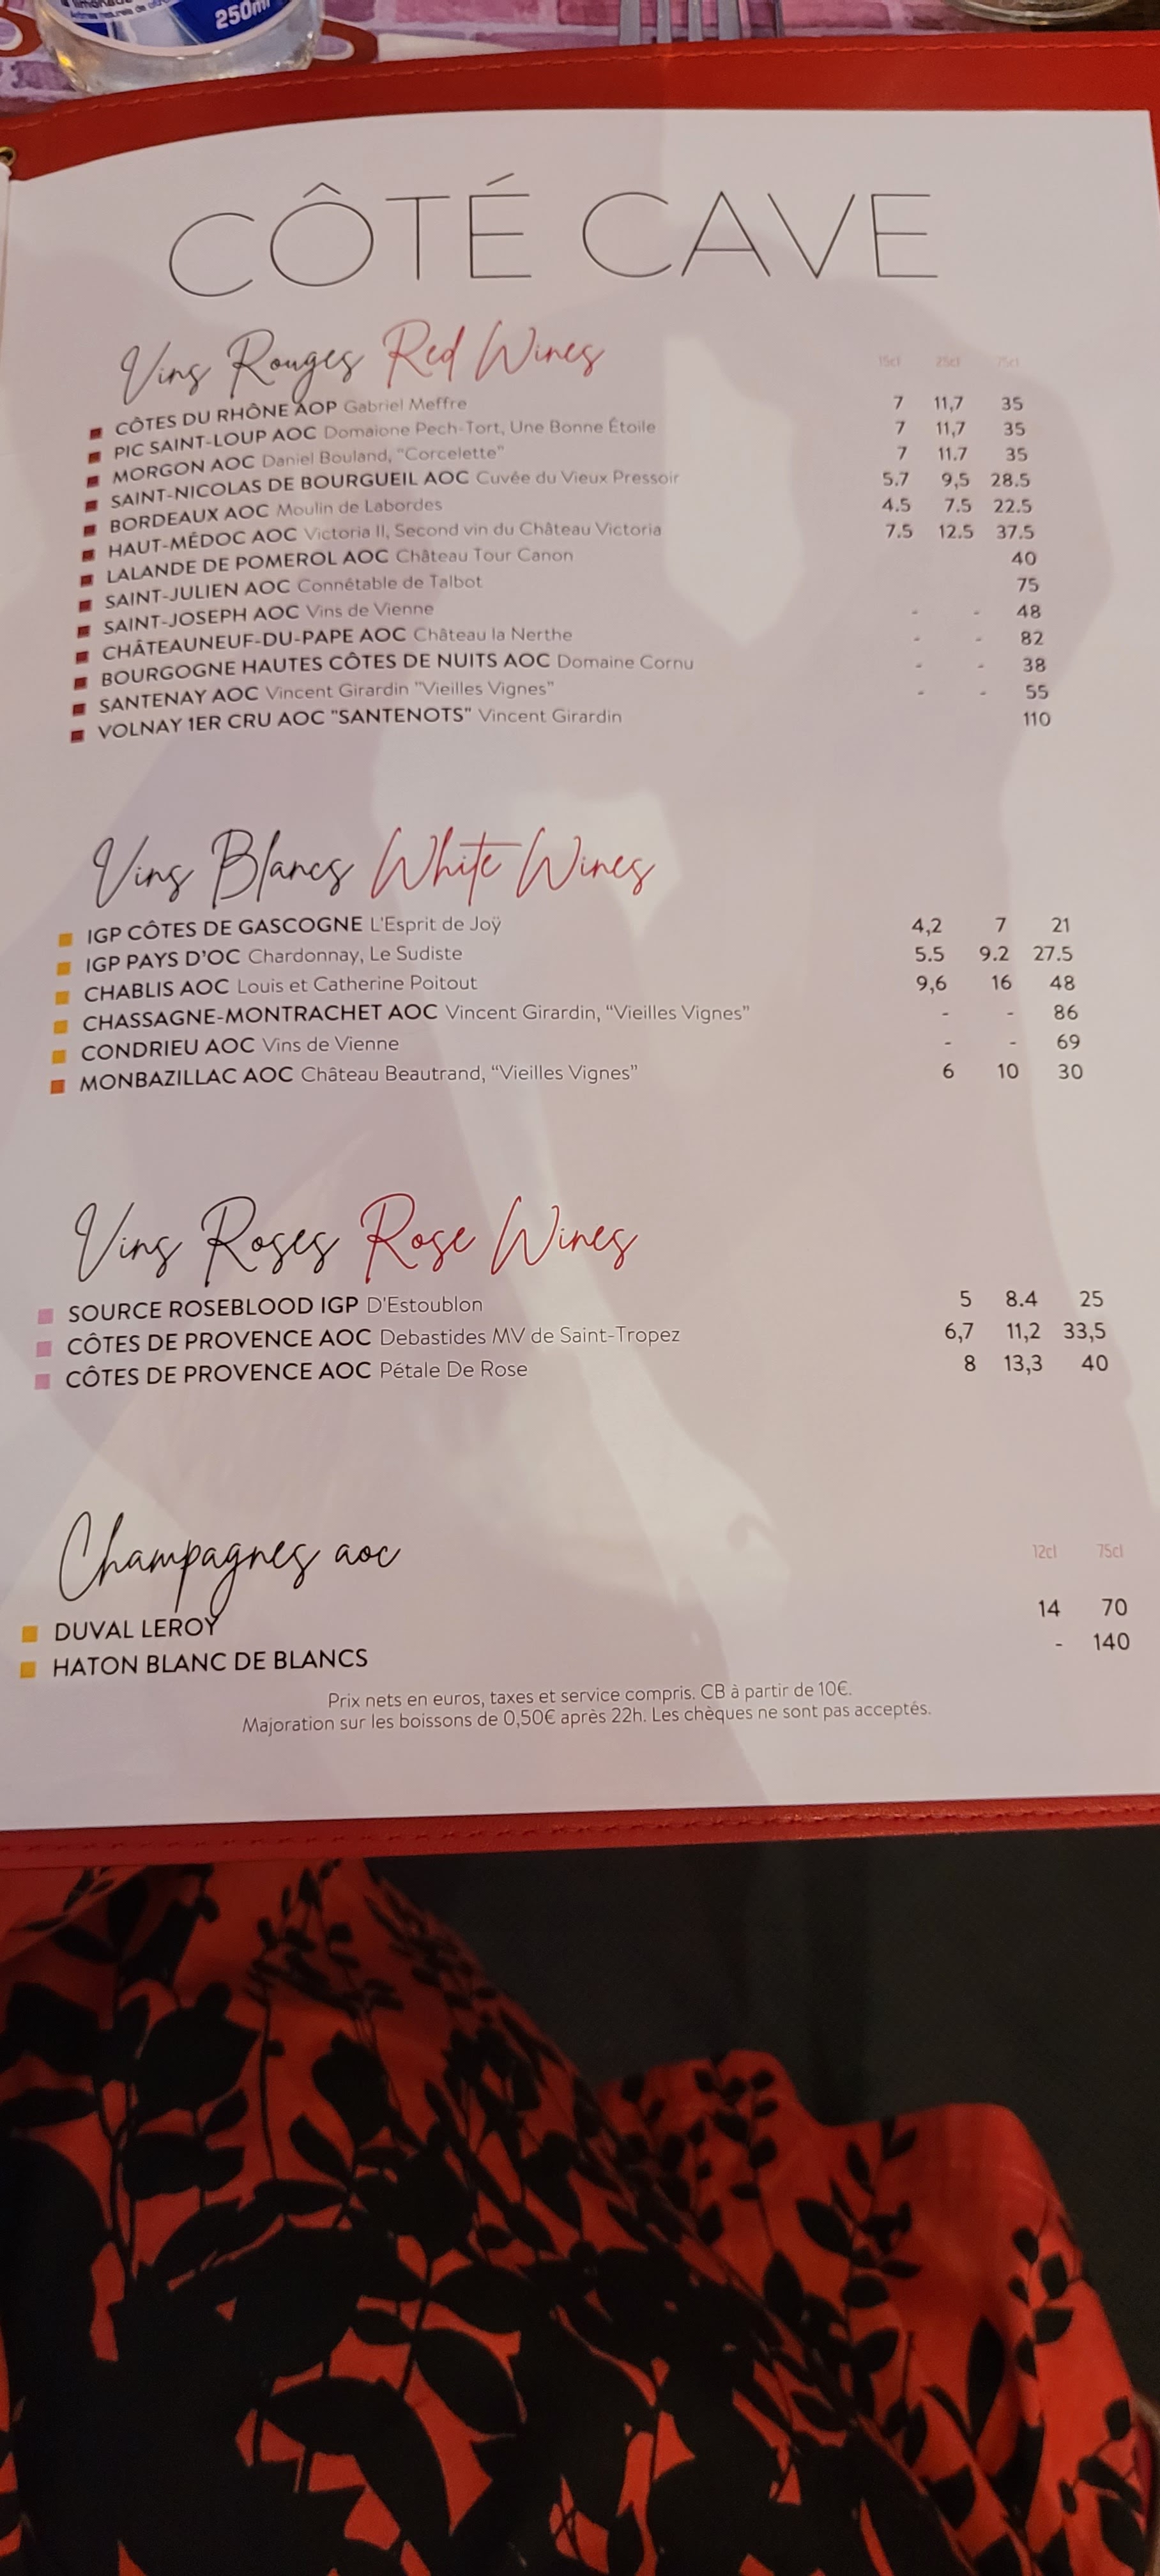 250ml
CÔTÉ CAVE
Vins Rouges Red Wines 15cl 25cl 75cl
CÔTES DU RHÔNE AOP Gabriel Meffre 7 11,7 35
PIC SAINT-LOUP AOC Domaione Pech-Tort, Une Bonne Étoile 7 11,7 35
MORGON AOC Daniel Bouland, "Corcelette" 7 11.7 35
SAINT-NICOLAS DE BOURGUEIL AOC Cuvée du Vieux Pressoir 5.7 9,5 28.5
BORDEAUX AOC Moulin de Labordes 4.5 7.5 22.5
HAUT-MÉDOC AOC Victoria II, Second vin du Château Victoria 7.5 12.5 37.5
LALANDE DE POMEROL AOC Château Tour Canon 40
SAINT-JULIEN AOC Connétable de Talbot 75
SAINT-JOSEPH AOC Vins de Vienne - - 48
CHÂTEAUNEUF-DU-PAPE AOC Château la Nerthe - - 82
BOURGOGNE HAUTES CÔTES DE NUITS AOC Domaine Cornu - - 38
SANTENAY AOC Vincent Girardin "Vieilles Vignes" - - 55
VOLNAY 1ER CRU AOC "SANTENOTS" Vincent Girardin 110
Vins Blancs White Wines
IGP CÔTES DE GASCOGNE L'Esprit de Joÿ 4,2 7 21
IGP PAYS D'OC Chardonnay, Le Sudiste 5.5 9.2 27.5
CHABLIS AOC Louis et Catherine Poitout 9,6 16 48
CHASSAGNE-MONTRACHET AOC Vincent Girardin, "Vieilles Vignes" - - 86
CONDRIEU AOC Vins de Vienne - - 69
MONBAZILLAC AOC Château Beautrand, "Vieilles Vignes" 6 10 30
Vins Roses Rose Wines
SOURCE ROSEBLOOD IGP D'Estoublon 5 8.4 25
CÔTES DE PROVENCE AOC Debastides MV de Saint-Tropez 6,7 11,2 33,5
CÔTES DE PROVENCE AOC Pétale De Rose 8 13,3 40
Champagnes aoc 12cl 75cl
DUVAL LEROY 14 70
HATON BLANC DE BLANCS - 140
Prix nets en euros, taxes et service compris. CB à partir de 10€.
Majoration sur les boissons de 0,50€ après 22h. Les chèques ne sont pas acceptés.